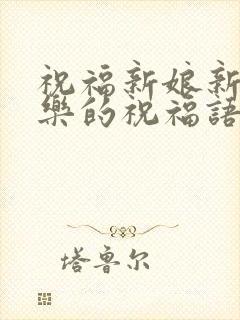 祝福新娘新
樂的祝福語
塔魯尔